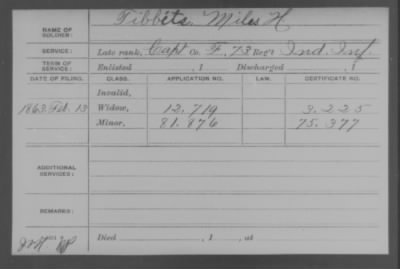 NAME OF SOLDIER: Tibbets, Miles H
SERVICE: Late rank, Capt Co. F, 73 Reg't Ind. Inf.
TERM OF SERVICE: Enlisted , 1 Discharged , 1
DATE OF FILING. CLASS. APPLICATION NO. LAW. CERTIFICATE NO.
Invalid,
1863. Feb. 13 Widow, 12.719 3.235
Minor, 81.876 75.377
ADDITIONAL SERVICES:
REMARKS:
Died , 1 , at